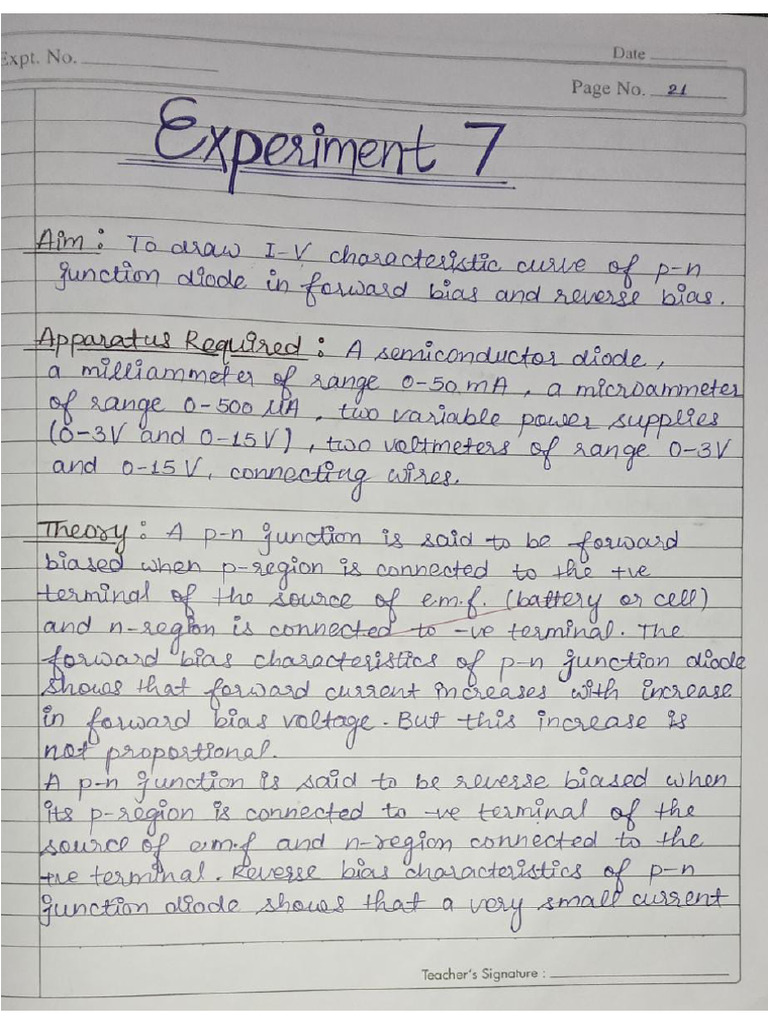 Expt. No.
Date
Page No. 21
Experiment 7
Aim : To draw I-V characteristic curve of p-n
junction diode in forward bias and reverse bias.
Apparatus Required : A semiconductor diode,
a milliammeter of range 0-50 mA, a microammeter
of range 0-500 μA, two variable power supplies
(0-3V and 0-15V), two voltmeters of range 0-3V
and 0-15V, connecting wires.
Theory : A p-n junction is said to be forward
biased when p-region is connected to the +ve
terminal of the source of e.m.f. (battery or cell)
and n-region is connected to -ve terminal. The
forward bias characteristics of p-n junction diode
shows that forward current increases with increase
in forward bias voltage. But this increase is
not proportional.
A p-n junction is said to be reverse biased when
its p-region is connected to -ve terminal of the
source of e.m.f and n-region connected to the
+ve terminal. Reverse bias characteristics of p-n
junction diode shows that a very small current
Teacher's Signature :